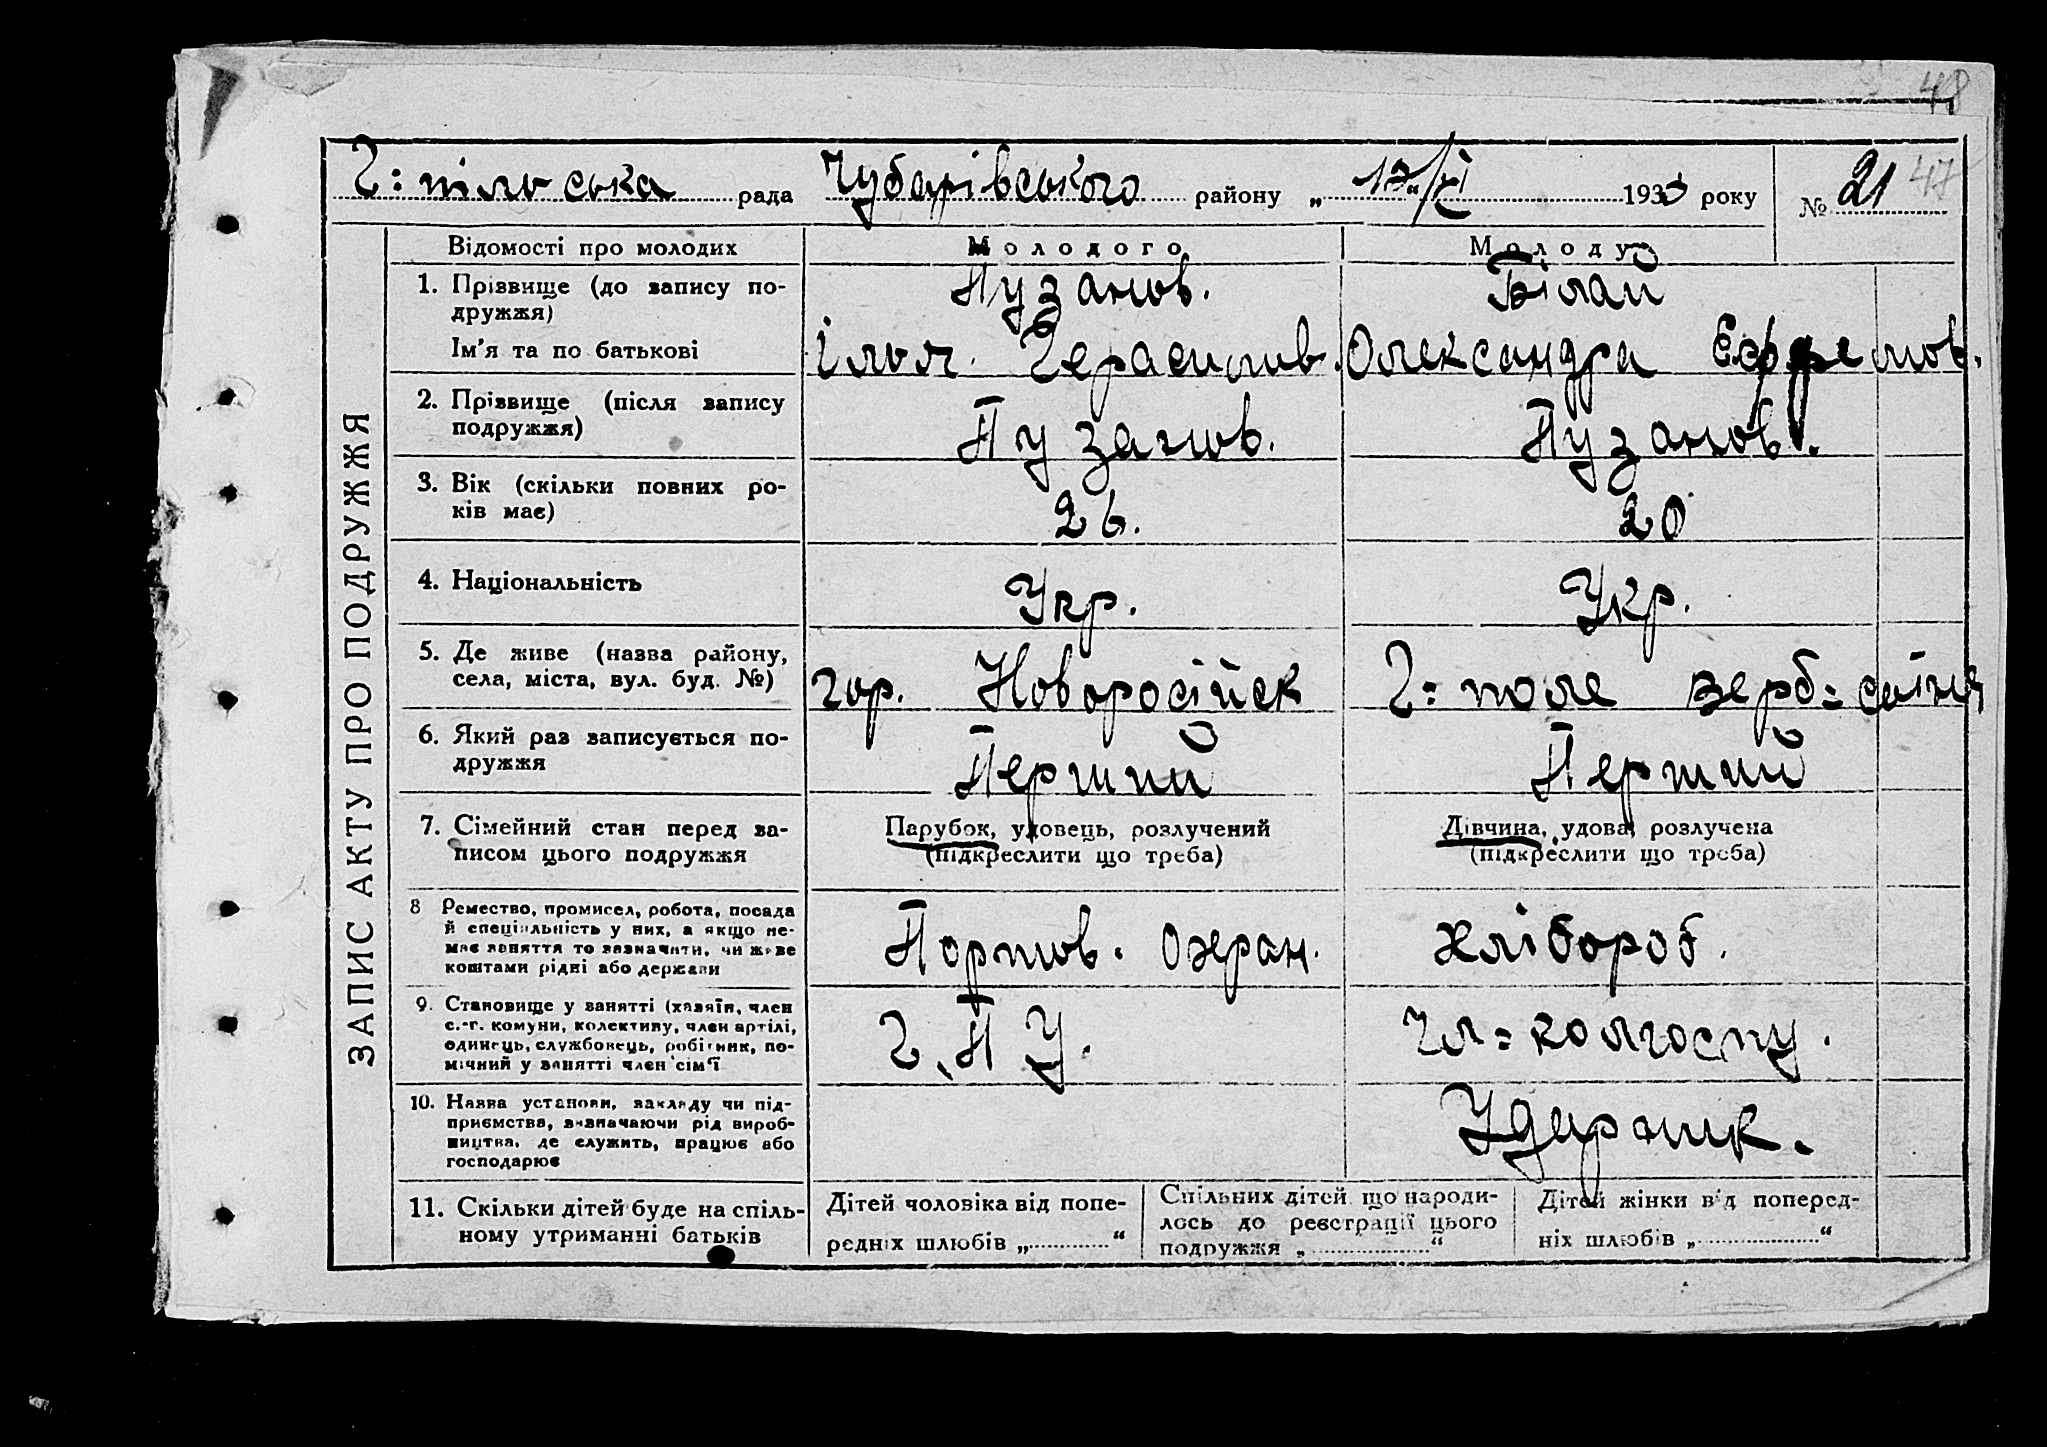 48
Г: пільська рада Чубарівського району „17“/XI 1933 року № 21 47
ЗАПИС АКТУ ПРО ПОДРУЖЖЯ
Відомості про молодих Молодого Молоду
1. Прізвище (до запису по- Пузанов. Білай
дружжя)
Ім'я та по батькові Ілья. Герасимив. Олександра Єфремов.
2. Прізвище (після запису Пузанов. Пузанов.
подружжя)
3. Вік (скільки повних ро- 26. 20
ків має)
4. Національність Укр. Укр.
5. Де живе (назва району, гор. Новоросійск Г: поле верб=
села, міста, вул. буд. №)
6. Який раз записується по- Перший Перший
дружжя
7. Сімейний стан перед за- Парубок, удовець, розлучений Дівчина, удова, розлучена
писом цього подружжя (підкреслити що треба) (підкреслити що треба)
8 Ремество, промисел, робота, посада
й спеціяльність у них, а якщо не- Портов. Охран. хлібороб.
має заняття то зазначити, чи живе
коштами рідні або держави
9. Становище у занятті (хазяїн, член
с.-г. комуни, колективу, член артілі, Г. П У. чл=колгоспу.
одинець, службовець, робітник, по-
мічний у занятті член сім'ї
10. Назва установи, закладу чи під- Ударник.
приємства, зазначаючи рід вироб-
ництва, де служить, працює або
господарює
11. Скільки дітей буде на спіль- Дітей чоловіка від попе- Спільних дітей що народи- Дітей жінки від поперед-
ному утриманні батьків редніх шлюбів „ “ лось до реєстрації цього ніх шлюбів „ “
подружжя „ “